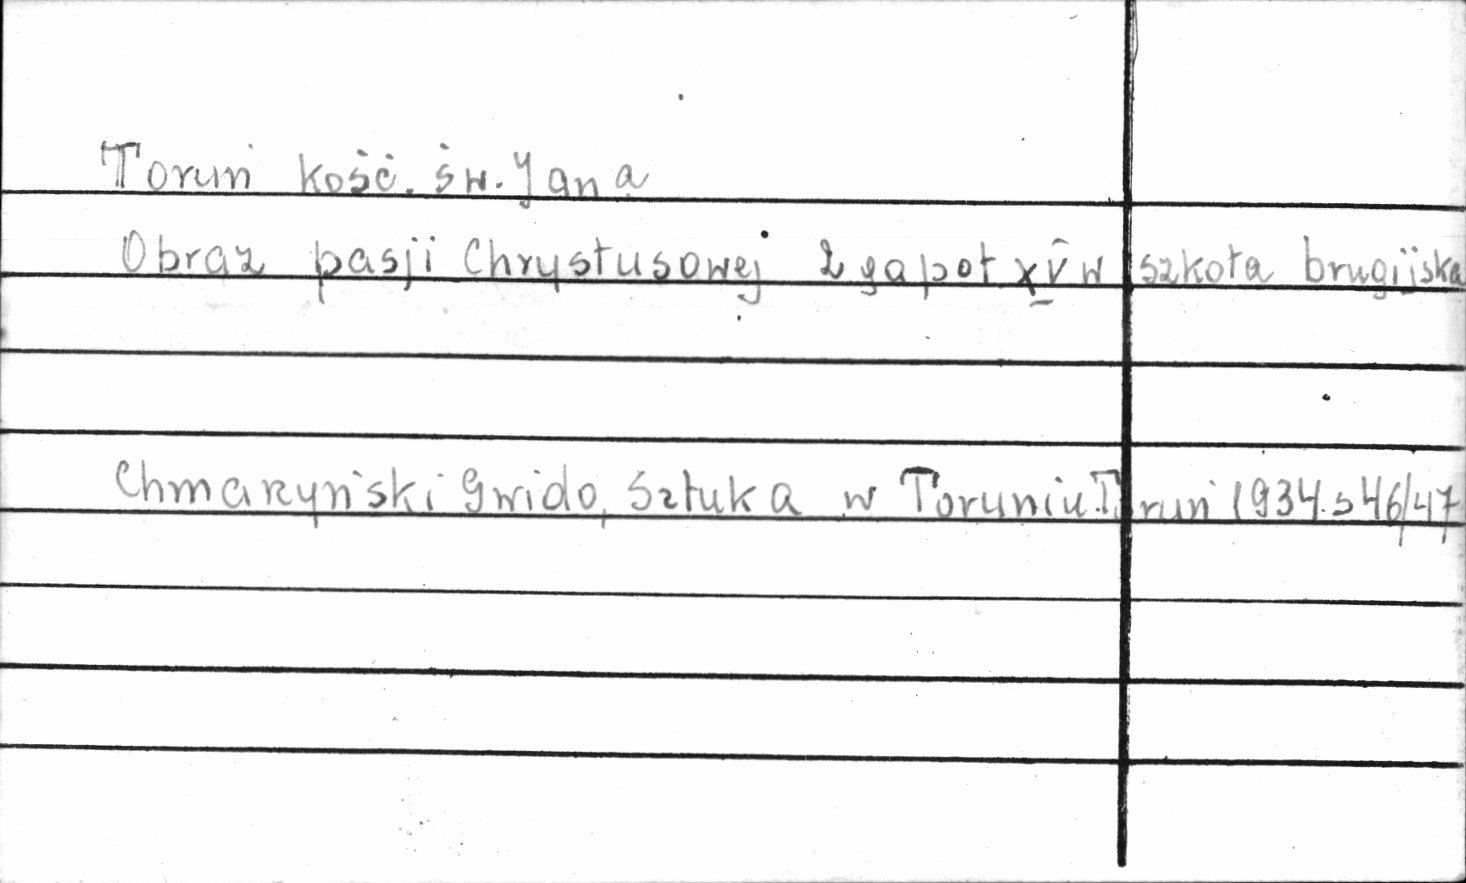 Toruń kość. św. Jana
Obraz pasji Chrystusowej 2 ga poł. XV w szkoła brugijska
Chmarzyński Gwido, Sztuka w Toruniu. Toruń 1934. s 46/47